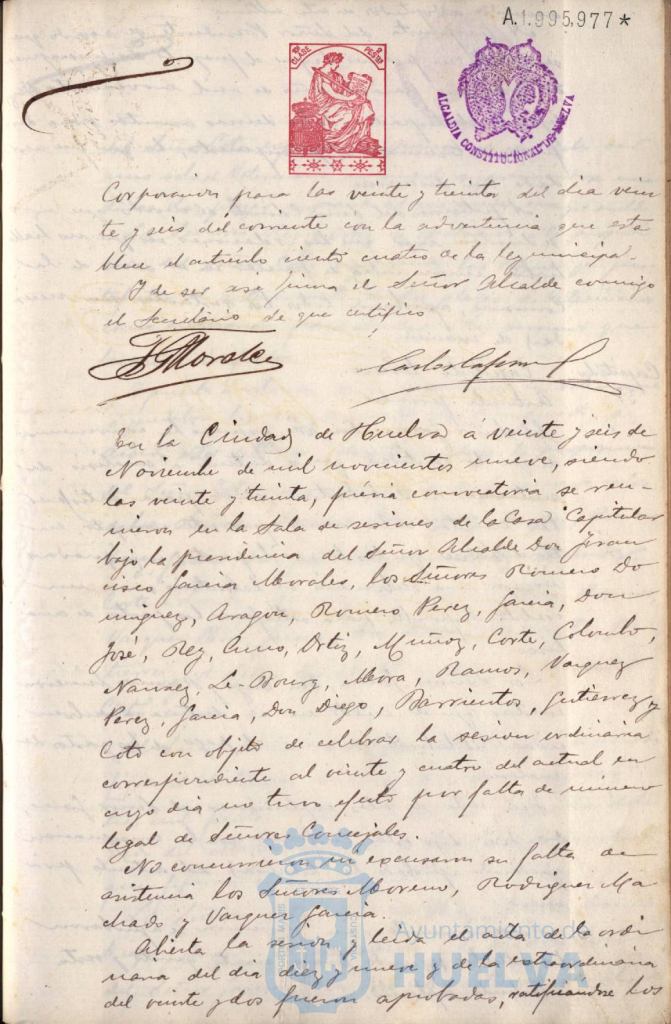 A.1.995,977*
CLASE PESETAS
ALCALDIA CONSTITUCIONAL DE HUELVA
Corporación para las veinte y treinta del dia vein
te y seis del corriente con la advertencia que esta
blece el artículo ciento cuatro de la ley municipal.
Y de ser asi firma el Señor Alcalde conmigo
el Secretario de que certifico
F. G Morales
En la Ciudad de Huelva á veinte y seis de
Noviembre de mil novecientos nueve, siendo
las veinte y treinta, prévia convocatoria se reu-
nieron en la Sala de sesiones de la Casa Capitular
bajo la presidencia del Señor Alcalde Don Fran
cisco García Morales, los Señores Romero Do
minguez, Aragon, Romero Perez, Garcia, Don
José, Rey, Ortiz, Muñoz, Corte, Colombo,
Narvaez, Le-Bourg, Mora, Ramos, Vazquez
Perez, Garcia, Don Diego, Barrientos, Gutierrez y
Coto con objeto de celebrar la sesion ordinaria
correspondiente al veinte y cuatro del actual en
cuyo dia no tuvo efecto por falta de número
legal de Señores Concejales.
No concurrieron ni excusaron su falta de
asistencia los Señores Moreno, Rodriguez Ma
chado y Vazquez Garcia.
Abierta la sesion y leida el acta de la ordi
naria del dia diez y nueve y de la extraordinaria
del veinte y dos fueron aprobadas, ratificandose los
Ayuntamiento de
HUELVA